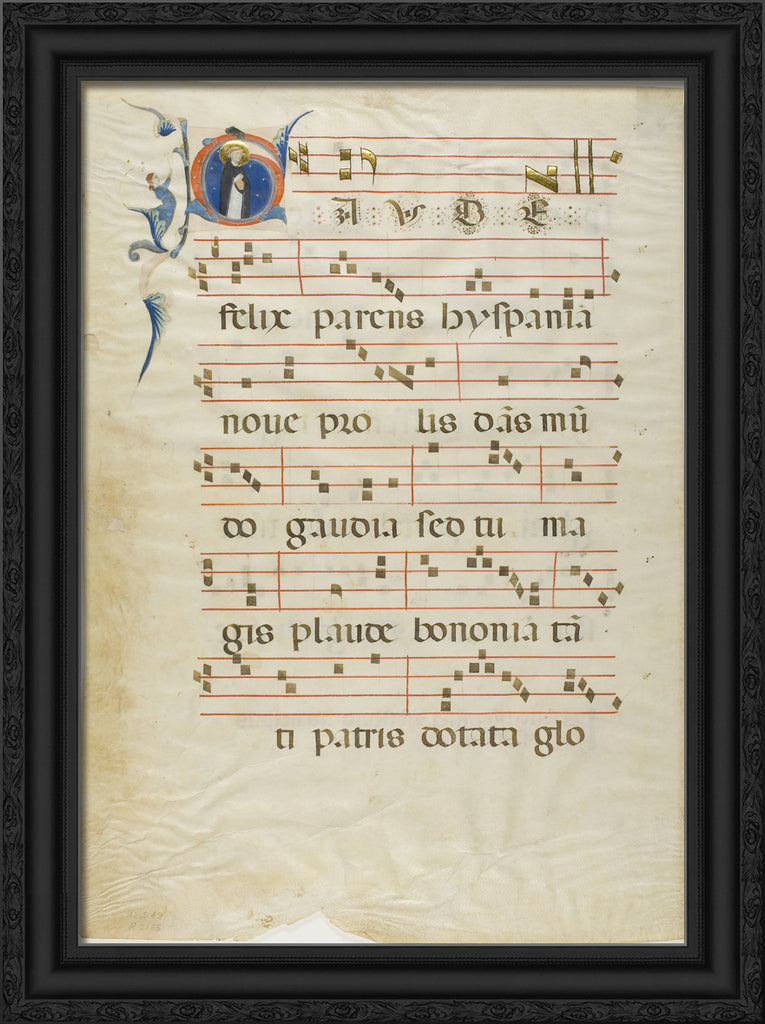 GAUDE
felix parens hyspania
noue prolis dãs mũ
do gaudia sed tu ma
gis plaude bononia tã
ti patris dotata glo